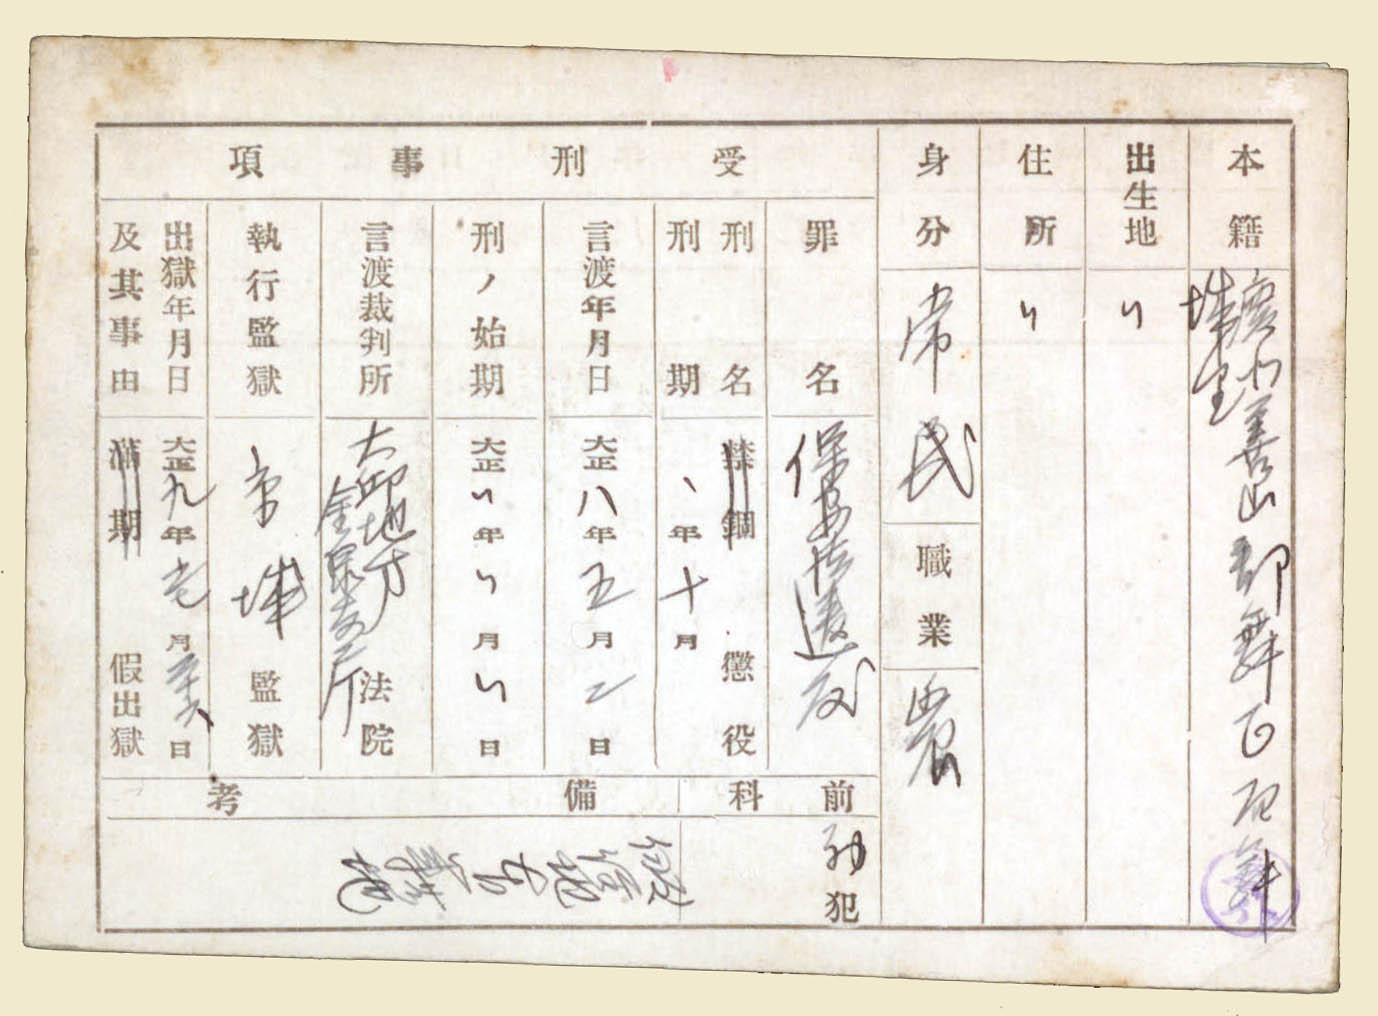 本籍
慶北善山郡
出生地
〃
住所
〃
身分
常民
職業
農
受刑事項
罪名
保安法違反
刑名
禁錮 懲役
刑期
、年十月
言渡年月日
大正八年五月二日
刑ノ始期
大正〃年〃月〃日
言渡裁判所
大邱地方
金泉支庁
法院
執行監獄
京城監獄
出獄年月日
及其事由
大正九年 月 日
満期 假出獄
前科
初犯
備考